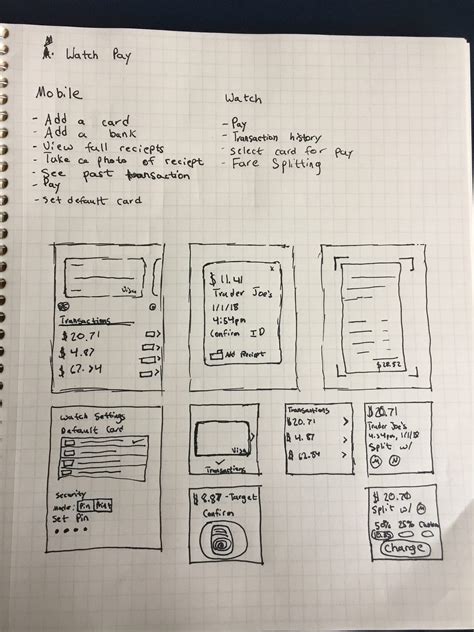 Watch Pay
Mobile
- Add a card
- Add a bank
- View full reciepts
- Take a photo of reciept
- See past transaction
- Pay
- Set default card
Watch
- Pay
- Transaction history
- select card for pay
- Fare Splitting
Visa
Transactions
$20.71
$ 4.87
$ 67.24
x
$ 11.41
Trader Joe's
1/1/18
4:54pm
Confirm ID
Add Receipt
$28.52
Watch Settings
Default Card
Security
Mode: Pin
Set Pin
Visa
Transactions
Transactions
$20.71
$ 4.87
$ 62.84
$20.71
Trader Joe's
4:54pm, 1/1/18
Split w/
$ 8.87 - Target
Confirm
$ 20.70
Split w/
50% 25% Custom
Charge